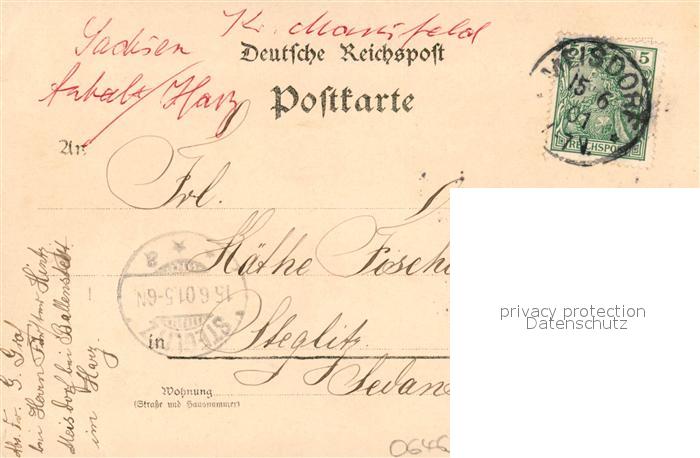 Kr. Mansfeld
Sachsen
Anhalt/Harz
Deutsche Reichspost
Postkarte
An
Frl.
Käthe
in Steglitz
Wohnung
(Straße und Hausnummer)
MEISDORF
15 6
01
V.
5
REICHSPOST
15.6.01.5-6N
Abs. Fr. G. Graf
bei Herrn Förster Hintz
Meisdorf bei Ballenstedt
im Harz.
privacy protection
Datenschutz